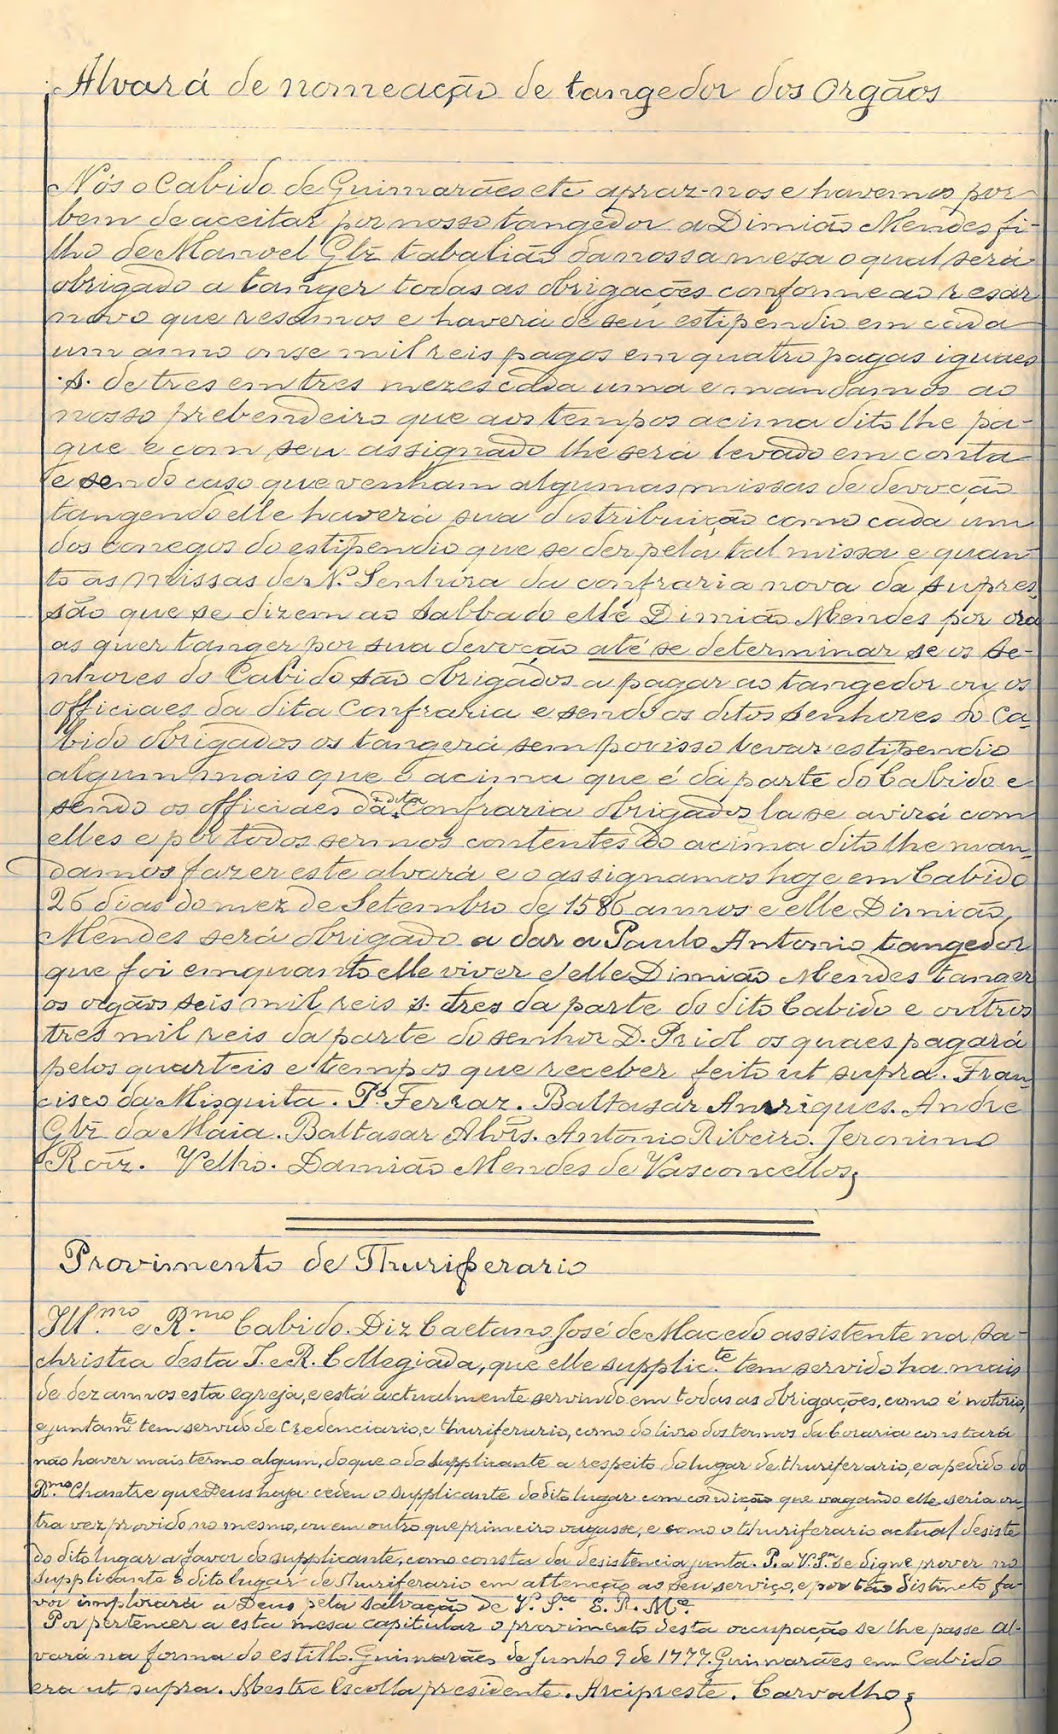 Alvará de nomeação de tangedor dos Orgãos
Nós o Cabido de Guimarães etc apraz-nos e havemos por
bem de aceitar por nosso tangedor a Dimião Mendes fi-
lho de Manoel Glz tabalião da nossa meza o qual será
obrigado a tanger todas as obrigações conforme ao resar
novo que resamos e haverá de seu estipendio em cada
um anno onse mil reis pagos em quatro pagas iguaes
.s. de tres em tres mezes cada uma e mandamos ao
nosso prebendeiro que aos tempos acima dito lhe pa-
gue e com seu assignado lhe será levado em conta
e sendo caso que venham algumas missas de devoção
tangendo elle haverá sua distribuição como cada um
dos conegos do estipendio que se der pela tal missa e quan-
to as missas de N.ª Senhora da confraria nova da supres
são que se dizem ao Sabbado elle Dimião Mendes por ora
as quer tanger por sua devoção até se determinar se os Se-
nhores do Cabido são obrigados a pagar ao tangedor ou os
officiaes da dita Confraria e sendo os ditos Senhores do Ca-
bido obrigados os tangerá sem por isso levar estipendio
algum mais que o acima que é da parte do Cabido e
sendo os officiaes da dita Confraria obrigados la se avirá com
elles e por todos sermos contentes do acima dito lhe man-
damos fazer este alvará e o assignamos hoje em Cabido
26 dias do mez de Setembro de 1586 annos e elle Dimião
Mendes será obrigado a dar a Paulo Antonio tangedor
que foi emquanto elle viver e elle Dimião Mendes tanger
os orgãos seis mil reis s. tres da parte do dito Cabido e outros
tres mil reis da parte do senhor D. Priol os quaes pagará
pelos quarteis e tempos que receber feito ut supra. Fran-
cisco da Misquita. P.º Ferraz. Baltasar Anrriques. Andre
Glz da Maia. Baltasar Alvis. Antonio Ribeiro. Jeronimo
Roiz. Velho. Damião Mendes de Vasconcellos
Provimento de Thuriferario
Ill.mo e R.mo Cabido. Diz Caetano José de Macedo assistente na Sa-
christia desta I. e R. Collegiada, que elle supplic.te tem servido ha mais
de dez annos esta egreja, e está actualmente servindo em todas as obrigações, como é notorio,
e juntam.te tem servido de Credenciario, e thuriferario, como do livro dos termos da Coraria constará
não haver mais termo algum, do que o do supplicante a respeito do lugar de thuriferario, e a pedido do
R.mo Chantre que Deus haja cedeu o supplicante do dito lugar com condição que vagando elle, seria ou-
tra vez provido no mesmo, ou em outro que primeiro vagasse, e como o thuriferario actual desiste
do dito lugar a favor do supplicante, como consta da desistencia junta. P. a V. S.ªs se digne prover no
supplicante o dito lugar de thuriferario em attenção ao seu serviço, e por tão distincto fa-
vor implorará a Deus pela salvação de V.ª S.ªs E. R. M.ce
Por pertencer a esta mesa capitular o provimento desta occupação se lhe passe Al-
vará na forma do estillo. Guimarães de Junho 9 de 1777. Guimarães em Cabido
era ut supra. Mestre Escolla presidente. Arcipreste. Carvalho